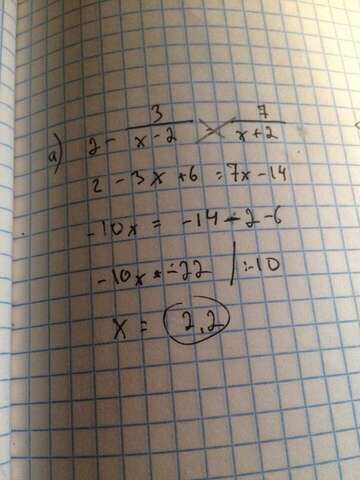 a) 2 - 3/(x-2) = 7/(x+2)
2 - 3x + 6 = 7x - 14
-10x = -14 - 2 - 6
-10x = -22 /:-10
x = 2,2